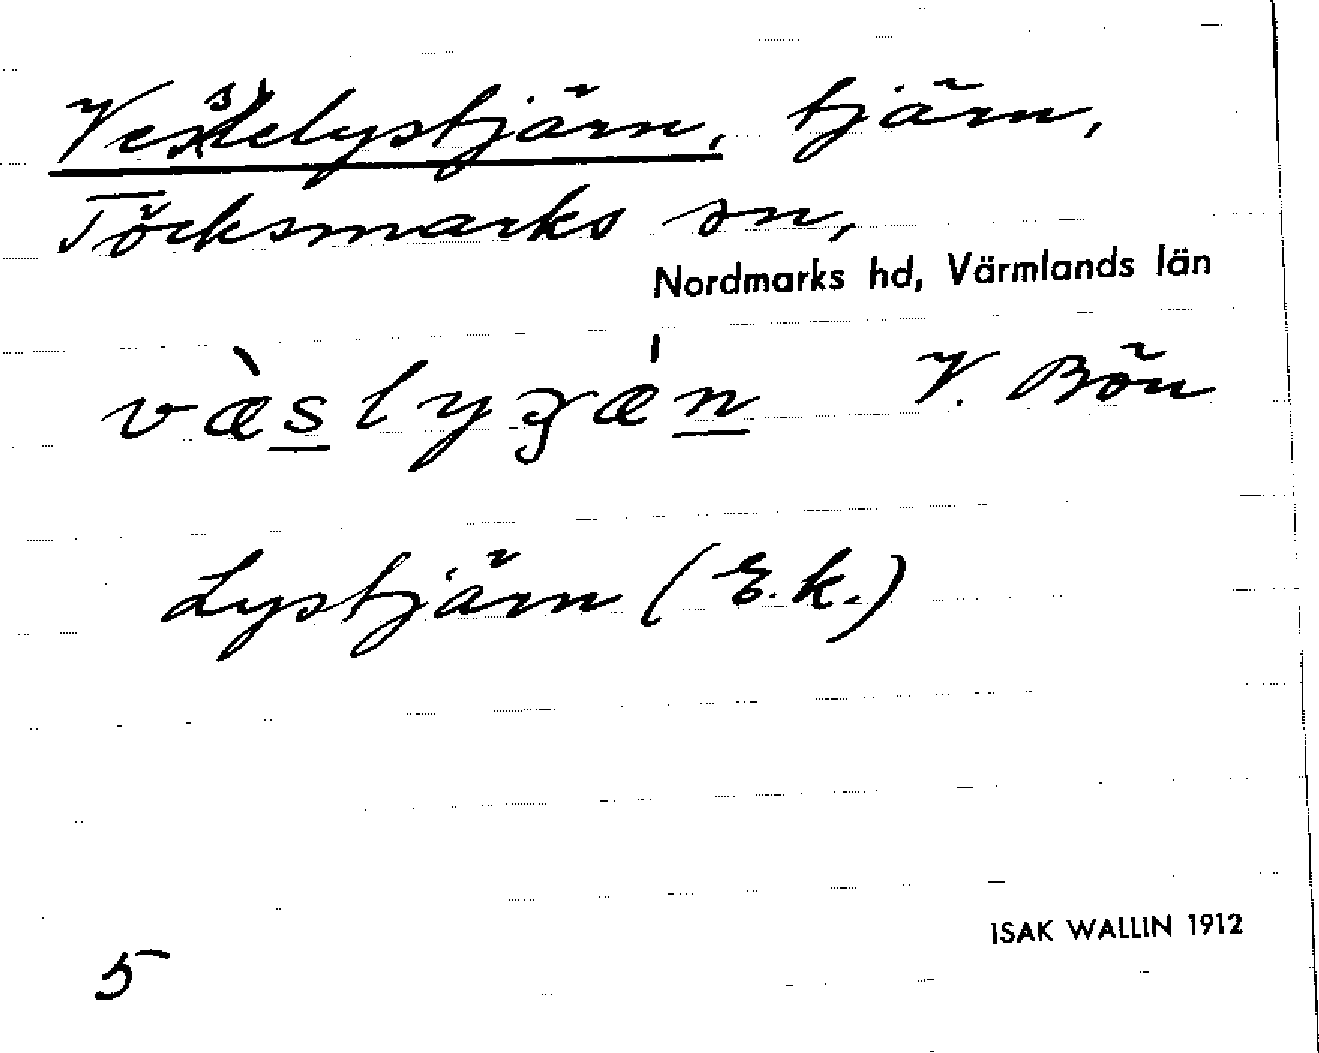 Vesslelystjärn, tjärn,
Töcksmarks sn,
Nordmarks hd, Värmlands län
væ̀slyʒæ̍n V. Bön
Lystjärn (E.k.)
5
ISAK WALLIN 1912